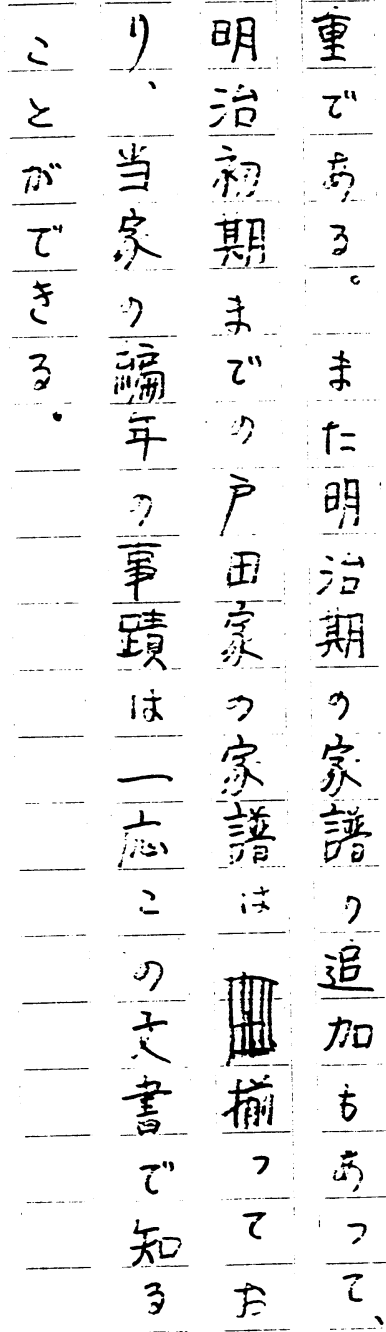 重である。また明治期の家譜の追加もあって、
明治初期までの戸田家の家譜は揃ってお
り、当家の編年の事蹟は一応この文書で知る
ことができる。